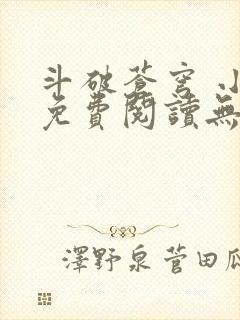 斗破蒼穹
免費閱讀無
澤野泉菅田